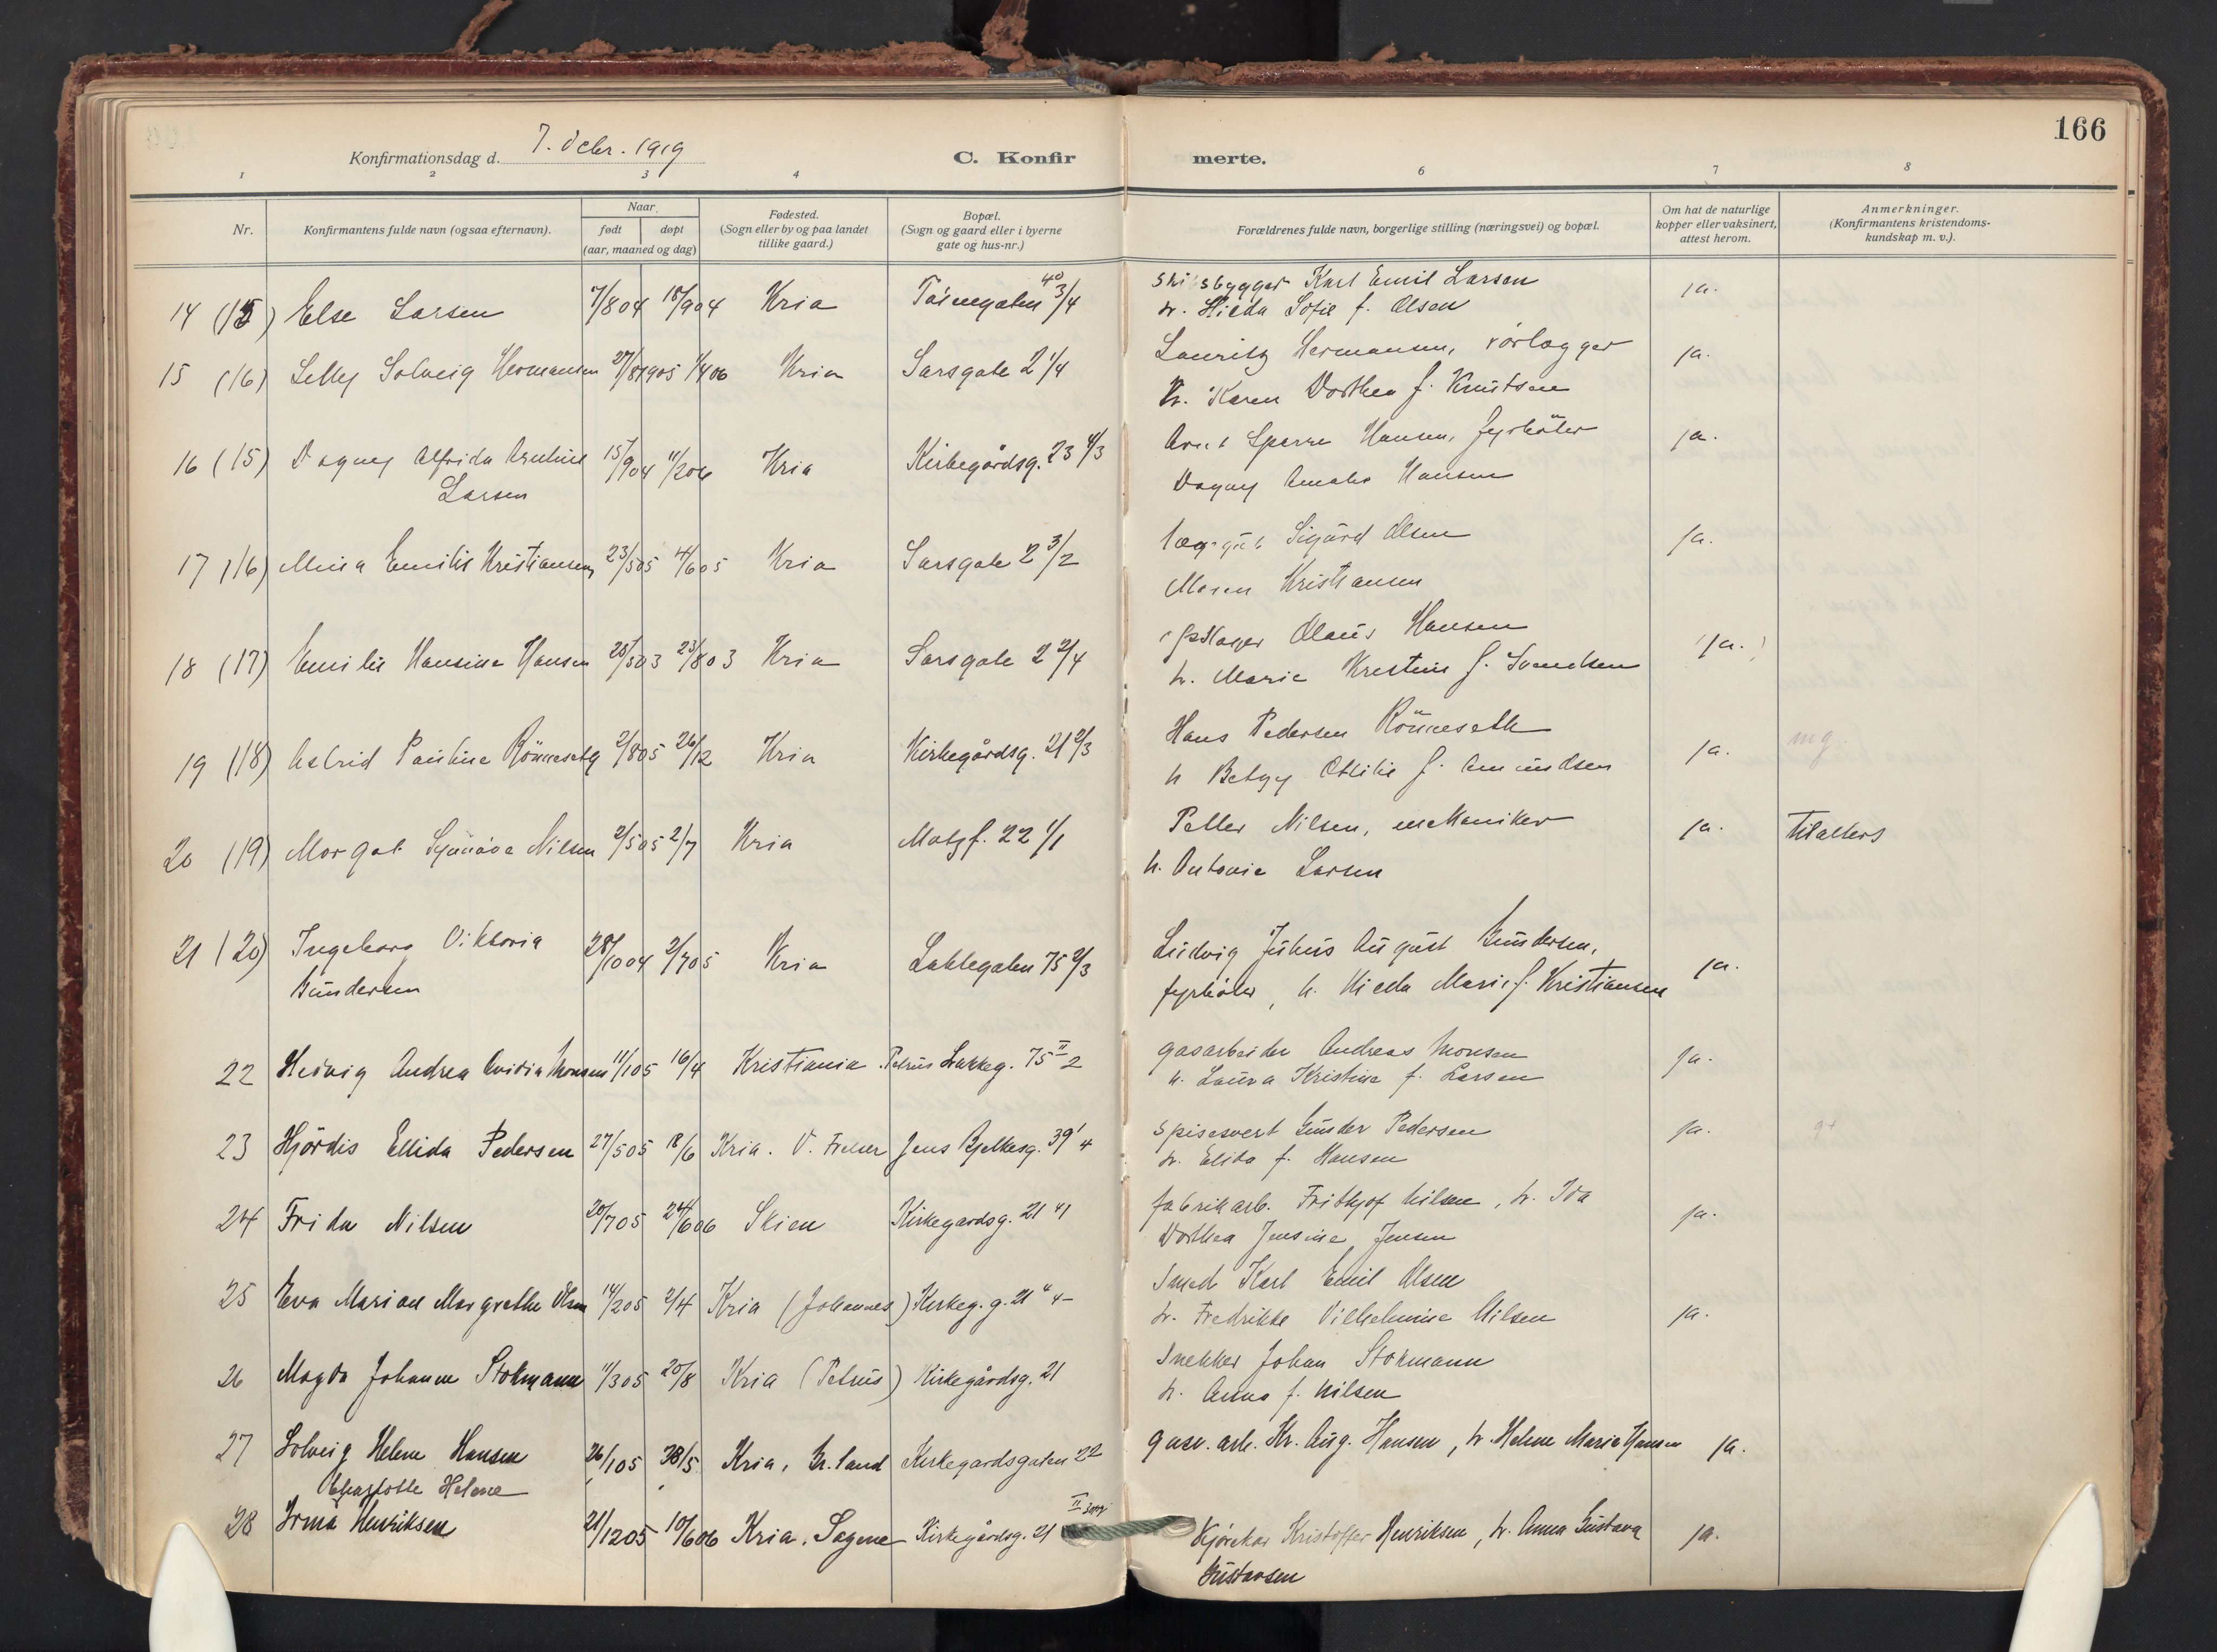 166
Konfirmationsdag d. 7. Decbr. 1919
C. Konfir merte.
1 2 3 4 6 7 8
Nr.
Konfirmantens fulde navn (ogsaa efternavn).
Naar
født
døpt
(aar, maaned og dag)
Fødested.
(Sogn eller by og paa landet
tillike gaard.)
Bopæl.
(Sogn og gaard eller i byerne
gate og hus-nr.)
Forældrenes fulde navn, borgerlige stilling (næringsvei) og bopæl.
Om hat de naturlige
kopper eller vaksinert,
attest herom.
Anmerkninger.
(Konfirmantens kristendoms-
kundskap m. v.).
14 Else Larsen 7/8 04 18/9 04 Kria Tøiengaten 40 3/4 Karl Emil Larsen ja.
h. Hilda Sofie f. Olsen
15 (16) Selly Solveig Hermansen 27/8 1905 1/4 06 Kria Sarsgate 2 1/4 Lauritz Hermansen, rörlægger ja.
h. Karen Dorthea f. Knutsen
16 (15) Dagny Alfrida 15/9 04 11/2 06 Kria Kirkegårdsg. 23 4/3 Sperre Hansen, fyrböter ja.
Larsen Dagny Amalia Hansen
17 (16) Mina Emilie Kristiansen 23/5 05 4/6 05 Kria Sarsgate 2 3/2 Sigurd Olsen ja.
Maren Kristiansen
18 (17) Emilie Hansine Hansen 25/3 03 23/8 03 Kria Sarsgate 2 2/4 Olaus Hansen ja.
h. Marie Kristine f. Svendsen
19 (18) Astrid Pauline Rönneseth 2/8 05 26/12 Kria Kirkegårdsg. 21 2/3 Hans Pedersen Rönneseth ja. mg.
h Betzy Ottilie f. Amundsen
20 (19) Margot Synnöve Nilsen 2/5 05 2/7 Kria Motzf. 22 1/1 Petter Nilsen, mekaniker ja. tilalters
h. Antonie Larsen
21 (20) Ingeborg Viktoria 28/10 04 2/7 05 Kria Lakkegaten 75 2/3 Ludvig Julius August Gundersen, ja.
Gundersen fyrböter, h. Hilda Marie f. Kristiansen
22 Hedvig Andrea Monsen 11/1 05 16/4 Kristiania. Petrus Lakkeg. 75 II 2 gasarbeider Andreas Monsen ja.
h. Laura Kristine f. Larsen
23 Hjördis Ellida Pedersen 27/5 05 18/6 Kria. V. Frelser Jens Bjelkesg. 39 1/4 spisevert Gunder Pedersen ja. g+
h. Elida f. Hansen
24 Frida Nilsen 20/7 05 24/6 06 Skien Kirkegårdsg. 21 fabrikarb. Frithjof Nilsen, h. Ida ja.
Dorthea Jensine Jensen
25 Eva Marian Margrethe Olsen 14/2 05 2/4 Kria (Johannes) Kirkeg. g. 21 Smed Karl Emil Olsen
h. Fredrikke Vilhelmine Nilsen ja.
26 Magda Johanne Stokmann 11/3 05 20/8 Kria (Petrus) Kirkegårdsg. 21 Snekker Johan Stokmann
h. Anna f. Nilsen
27 Solveig Helene Hansen 26/1 05 28/5 Kria, Gr.land Kirkegårdsgaten 22 gasv. arb. Kr. Aug. Hansen, h. Helene Marie Hansen ja.
Charlotte Helene
28 Irma Henriksen 21/12 05 10/6 06 Kria. Sagene Kirkegårdsg. 21 II Kjörekar Kristoffer Henriksen, h. Anna Gustava ja.
Gustavsen